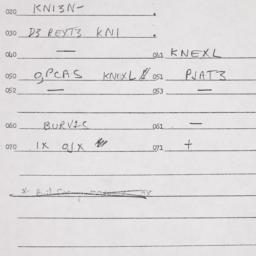 020 KNI3N-
030 D3 REYT3 KNI
040 — 041 KNEXL
050 O,PCAS KNEXL 051 PJAT3
052 — 053 —
060 BURVIS 061 —
070 IX OJX 071 +